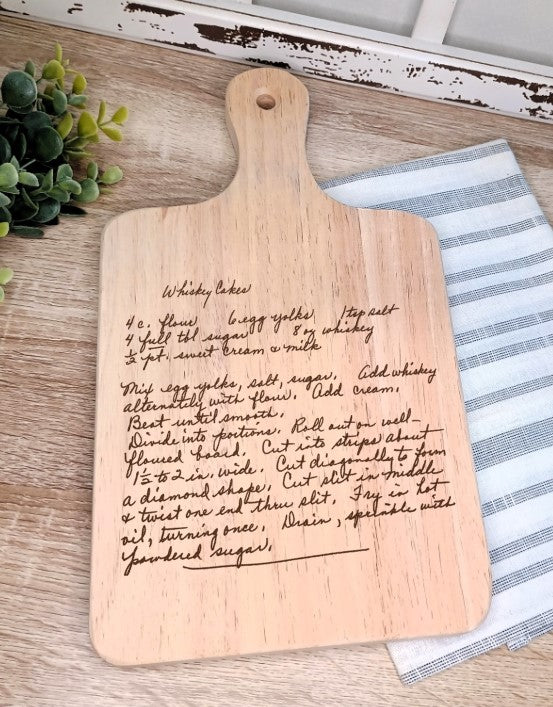 Whiskey Cakes
4 c. flour 6 egg yolks 1 tsp salt
4 full tbl sugar 8 oz whiskey
½ pt. sweet cream & milk
Mix egg yolks, salt, sugar. Add whiskey
alternately with flour. Add cream.
Beat until smooth.
Divide into portions. Roll out on well-
floured board. Cut into strips about
1½ to 2 in. wide. Cut diagonally to form
a diamond shape. Cut slit in middle
& twist one end thru slit. Fry in hot
oil, turning once. Drain, sprinkle with
powdered sugar.